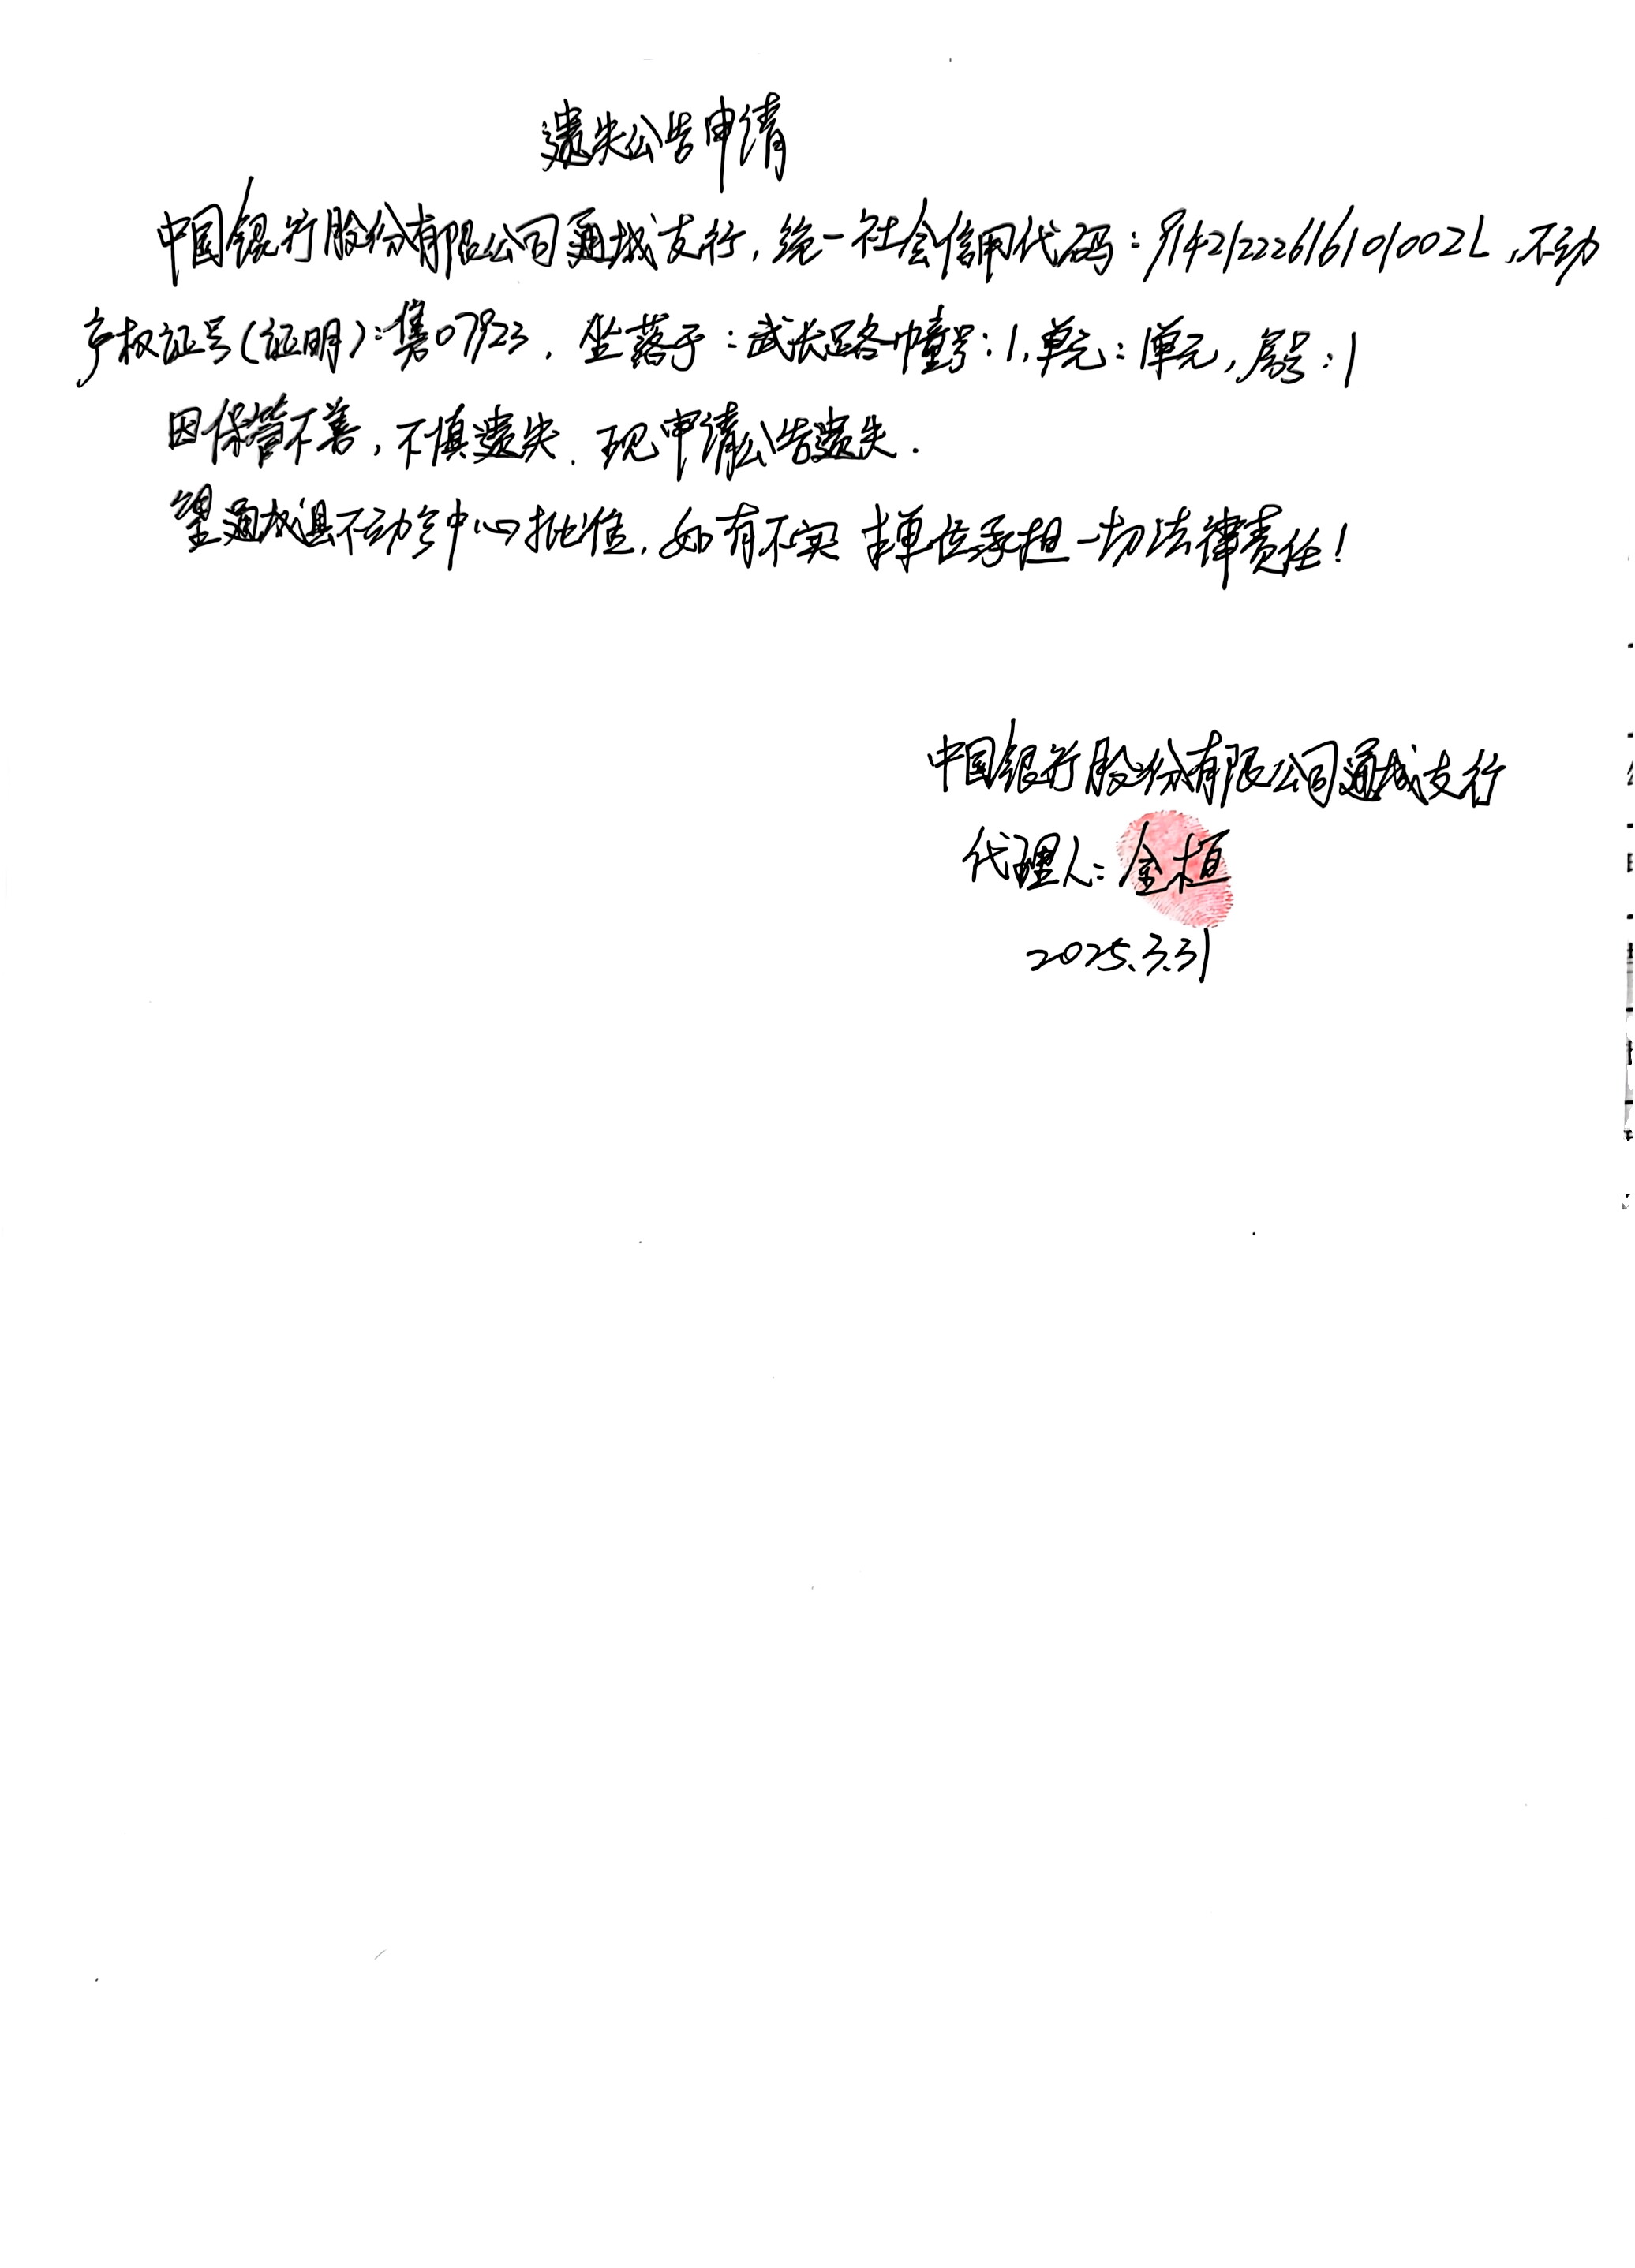 遗失公告申请
中国银行股份有限公司通城支行，统一社会信用代码：91421222616101002L，不动
产权证号（证明）：隽07923，坐落于：武长路幢号：1，单元：1单元，房号：1
因保管不善，不慎遗失，现申请公告遗失．
望通城县不动产中心批准，如有不实 本单位承担一切法律责任！
中国银行股份有限公司通城支行
代理人：金桓
2025.3.31